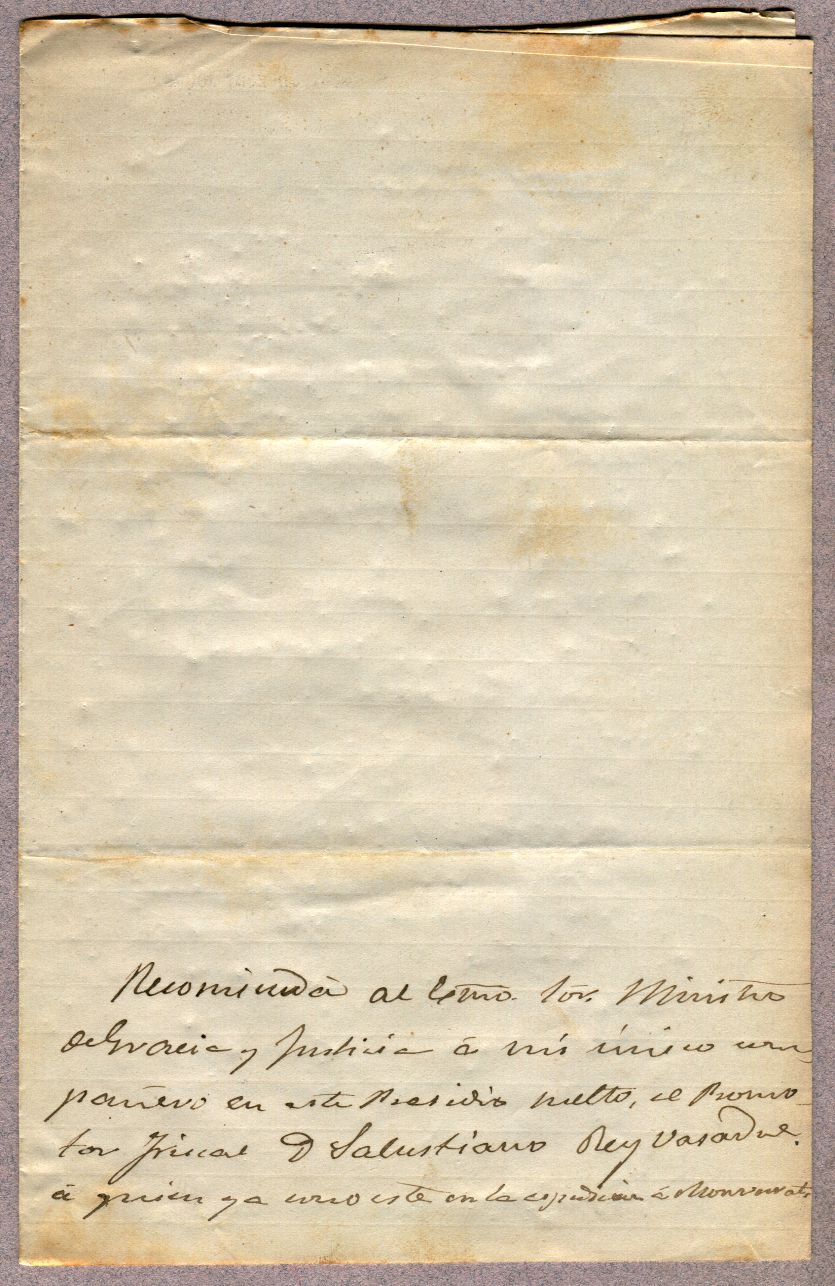 Recomienda al Exmo. Sor. Ministro
de Gracia y Justicia á mi único com
pañero en este Presidio suelto, el Promo-
tor Fiscal D Salustiano Rey
á quien ya conoce este en la expedicion á Monserrate